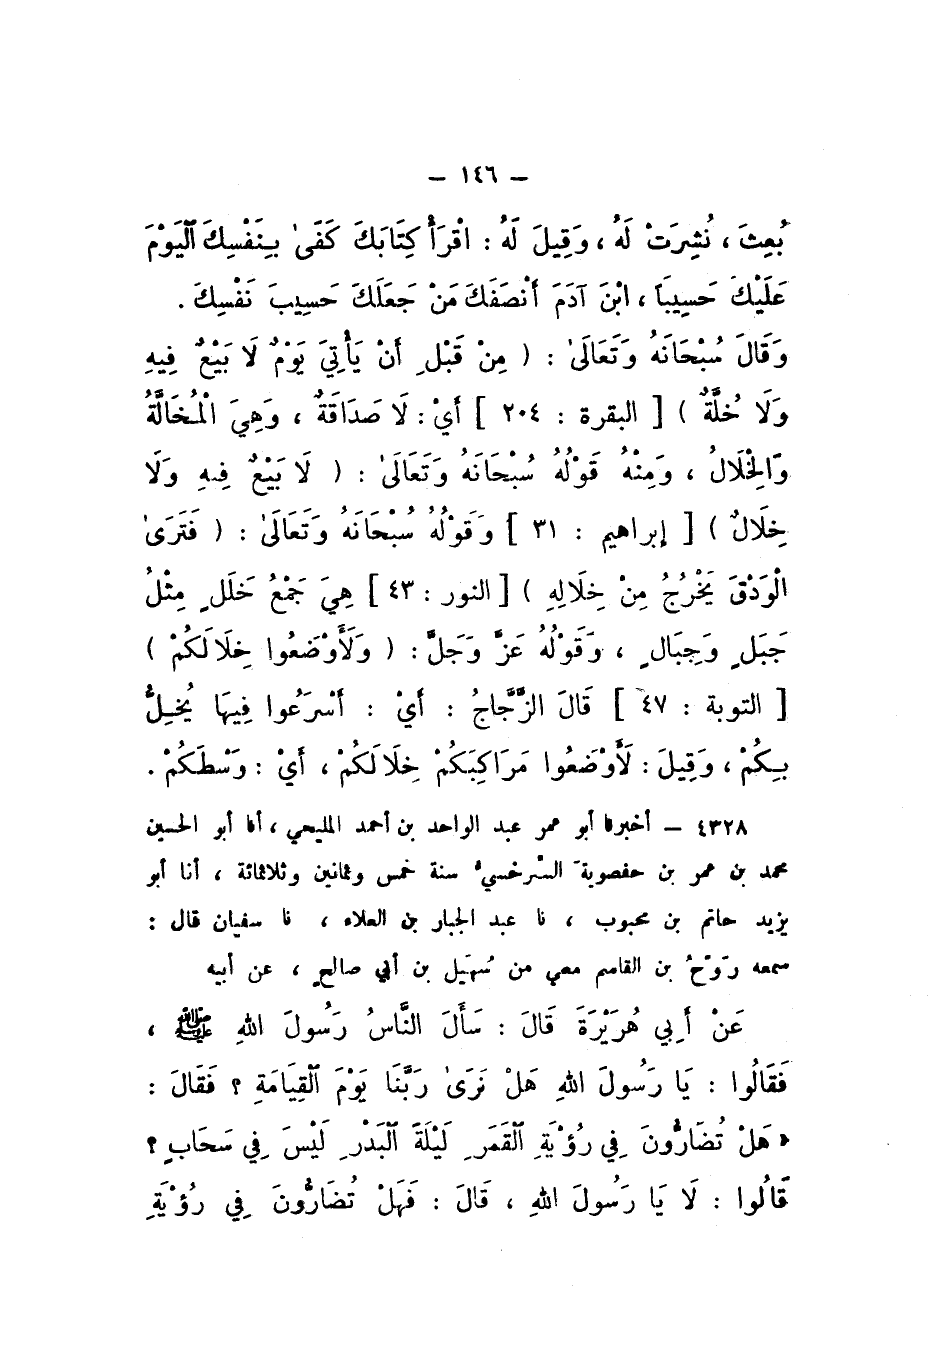 – ١٤٦ –
بُعِثَ ، نُشِرَتْ لَهُ ، وَقِيلَ لَهُ : اقْرَأْ كِتَابَكَ كَفَىٰ بِنَفْسِكَ ٱلْيَوْمَ
عَلَيْكَ حَسِيبًا ، ابْنَ آدَمَ أَنْصَفَكَ مَنْ جَعَلَكَ حَسِيبَ نَفْسِكَ .
وَقَالَ سُبْحَانَهُ وَتَعَالَىٰ : ( مِنْ قَبْلِ أَنْ يَأْتِيَ يَوْمٌ لَا بَيْعٌ فِيهِ
وَلَا خُلَّةٌ ) [ البقرة : ٢٠٤ ] أَيْ : لَا صَدَاقَةٌ ، وَهِيَ الْمُخَالَّةُ
وَالْخِلَالُ ، وَمِنْهُ قَوْلُهُ سُبْحَانَهُ وَتَعَالَىٰ : ( لَا بَيْعٌ فِيهِ وَلَا
خِلَالٌ ) [ إبراهيم : ٣١ ] وَقَوْلُهُ سُبْحَانَهُ وَتَعَالَىٰ : ( فَتَرَىٰ
الْوَدْقَ يَخْرُجُ مِنْ خِلَالِهِ ) [ النور : ٤٣ ] هِيَ جَمْعُ خَلَلٍ مِثْلُ
جَبَلٍ وَجِبَالٍ ، وَقَوْلُهُ عَزَّ وَجَلَّ : ( وَلَأَوْضَعُوا خِلَالَكُمْ )
[ التوبة : ٤٧ ] قَالَ الزَّجَّاجُ : أَيْ : أَسْرَعُوا فِيهَا يُخِلُّ
بِكُمْ ، وَقِيلَ : لَأَوْضَعُوا مَرَاكِبَكُمْ خِلَالَكُمْ ، أَيْ : وَسْطَكُمْ .
٤٣٢٨ – أخبرنا أبو عمر عبد الواحد بن أحمد المليحي ، أنا أبو الحسين
محمد بن عمر بن حفصويةَ السَّرخسيُّ سنة خمس وثمانين وثلاثمائة ، أنا أبو
يزيد حاتم بن محبوب ، نا عبد الجبار بن العلاء ، نا سفيان قال :
سمعه رَوْحُ بن القاسم معي من سُهَيل بن أبي صالحٍ ، عن أبيه
عَنْ أَبِي هُرَيْرَةَ قَالَ : سَأَلَ النَّاسُ رَسُولَ اللهِ ﷺ ،
فَقَالُوا : يَا رَسُولَ اللهِ هَلْ نَرَىٰ رَبَّنَا يَوْمَ ٱلْقِيَامَةِ ؟ فَقَالَ :
« هَلْ تُضَارُّونَ فِي رُؤْيَةِ ٱلْقَمَرِ لَيْلَةَ ٱلْبَدْرِ لَيْسَ فِي سَحَابٍ ؟
قَالُوا : لَا يَا رَسُولَ اللهِ ، قَالَ : فَهَلْ تُضَارُّونَ فِي رُؤْيَةِ